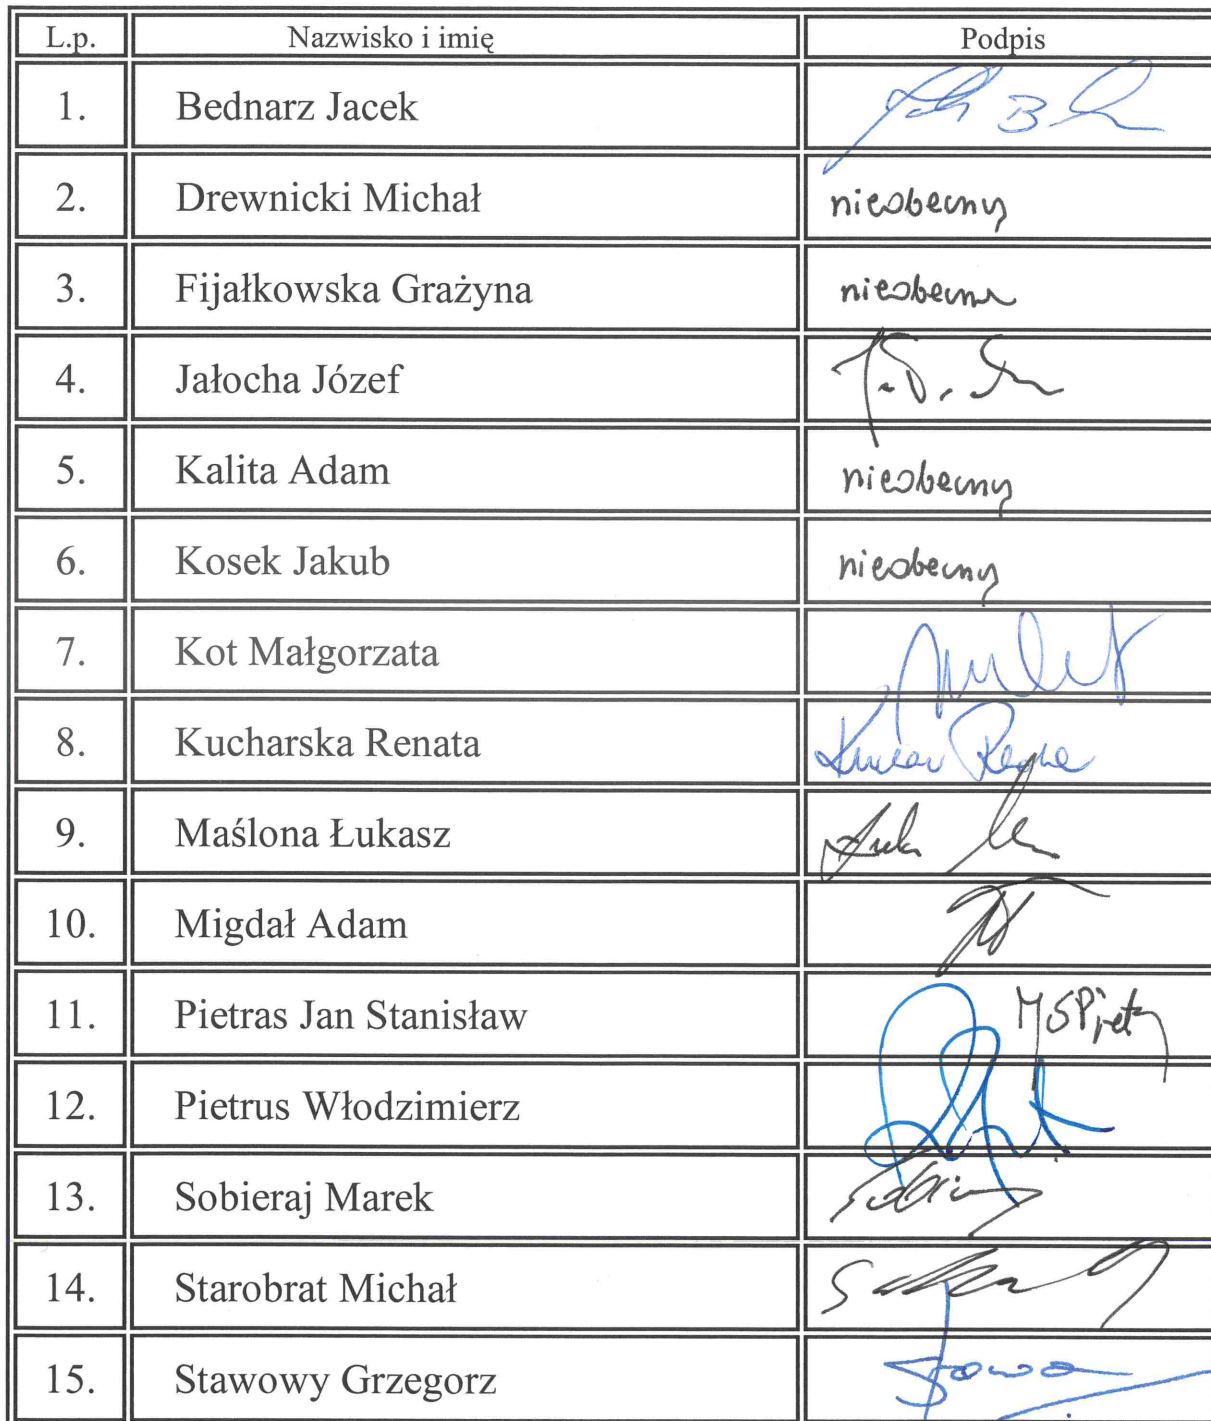 L.p. Nazwisko i imię Podpis
1. Bednarz Jacek
2. Drewnicki Michał nieobecny
3. Fijałkowska Grażyna nieobecna
4. Jałocha Józef
5. Kalita Adam nieobecny
6. Kosek Jakub nieobecny
7. Kot Małgorzata
8. Kucharska Renata
9. Maślona Łukasz
10. Migdał Adam
11. Pietras Jan Stanisław
12. Pietrus Włodzimierz
13. Sobieraj Marek
14. Starobrat Michał
15. Stawowy Grzegorz